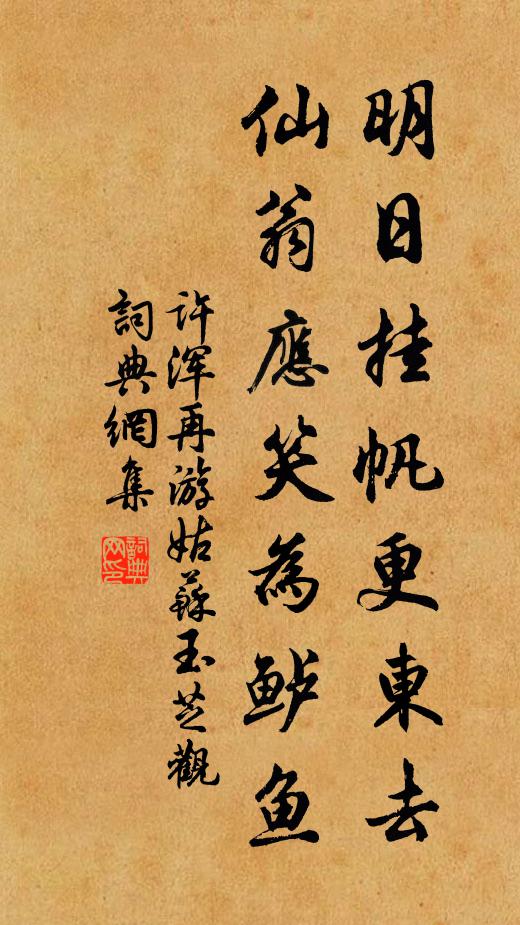 明日挂帆更東去
仙翁應笑為鲈鱼
许浑再游姑蘇玉芝觀
詞典網集
詞典網印